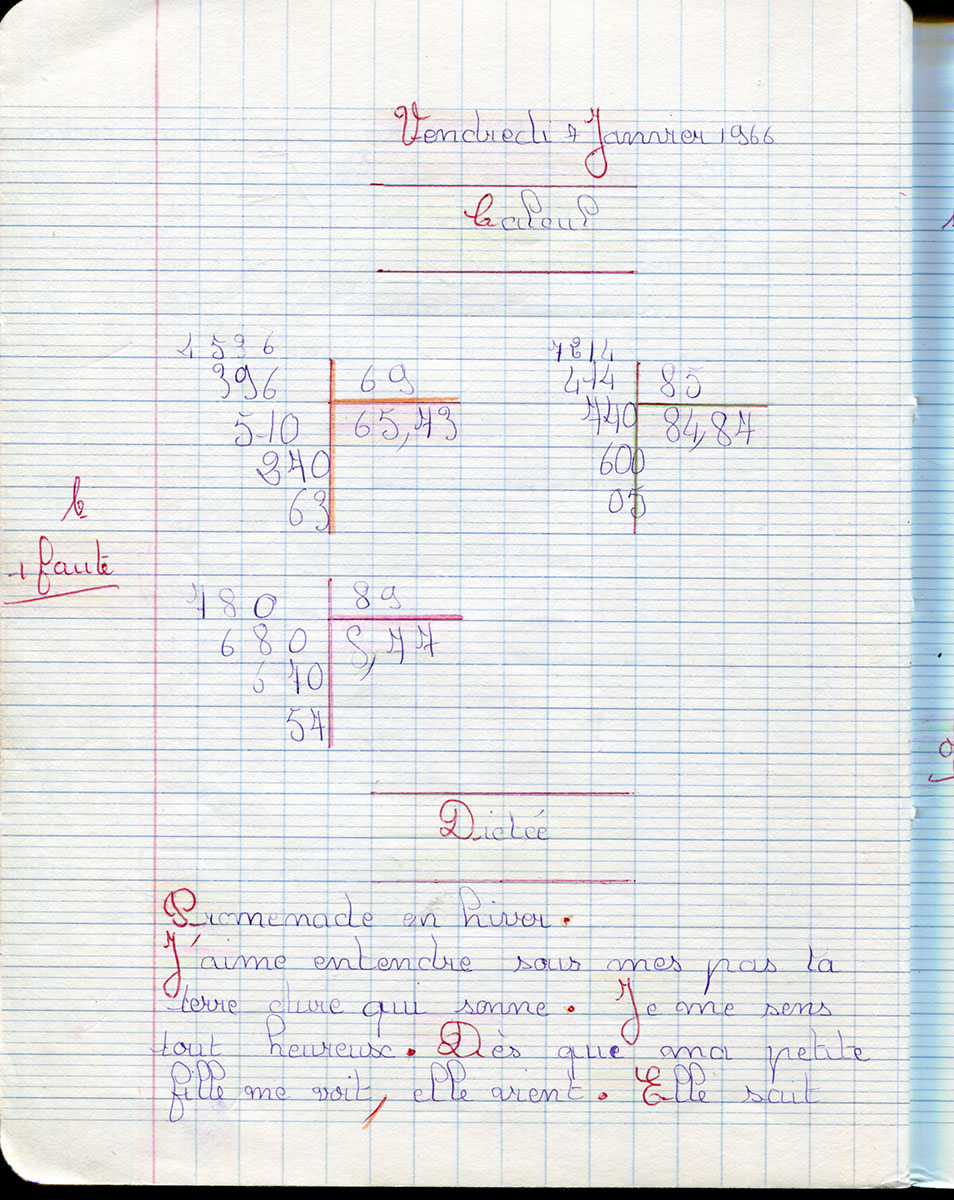 Vendredi 7 Janvier 1966
Calcul
4536
396 69
510 65,73
270
63
7214
414 85
740 84,87
600
05
1 faute
780 89
680 8,77
670
57
Dictée
Promenade en hiver.
J'aime entendre sous mes pas la
terre dure qui sonne. Je me sens
tout heureux. Dès que ma petite
fille me voit, elle vient. Elle sait